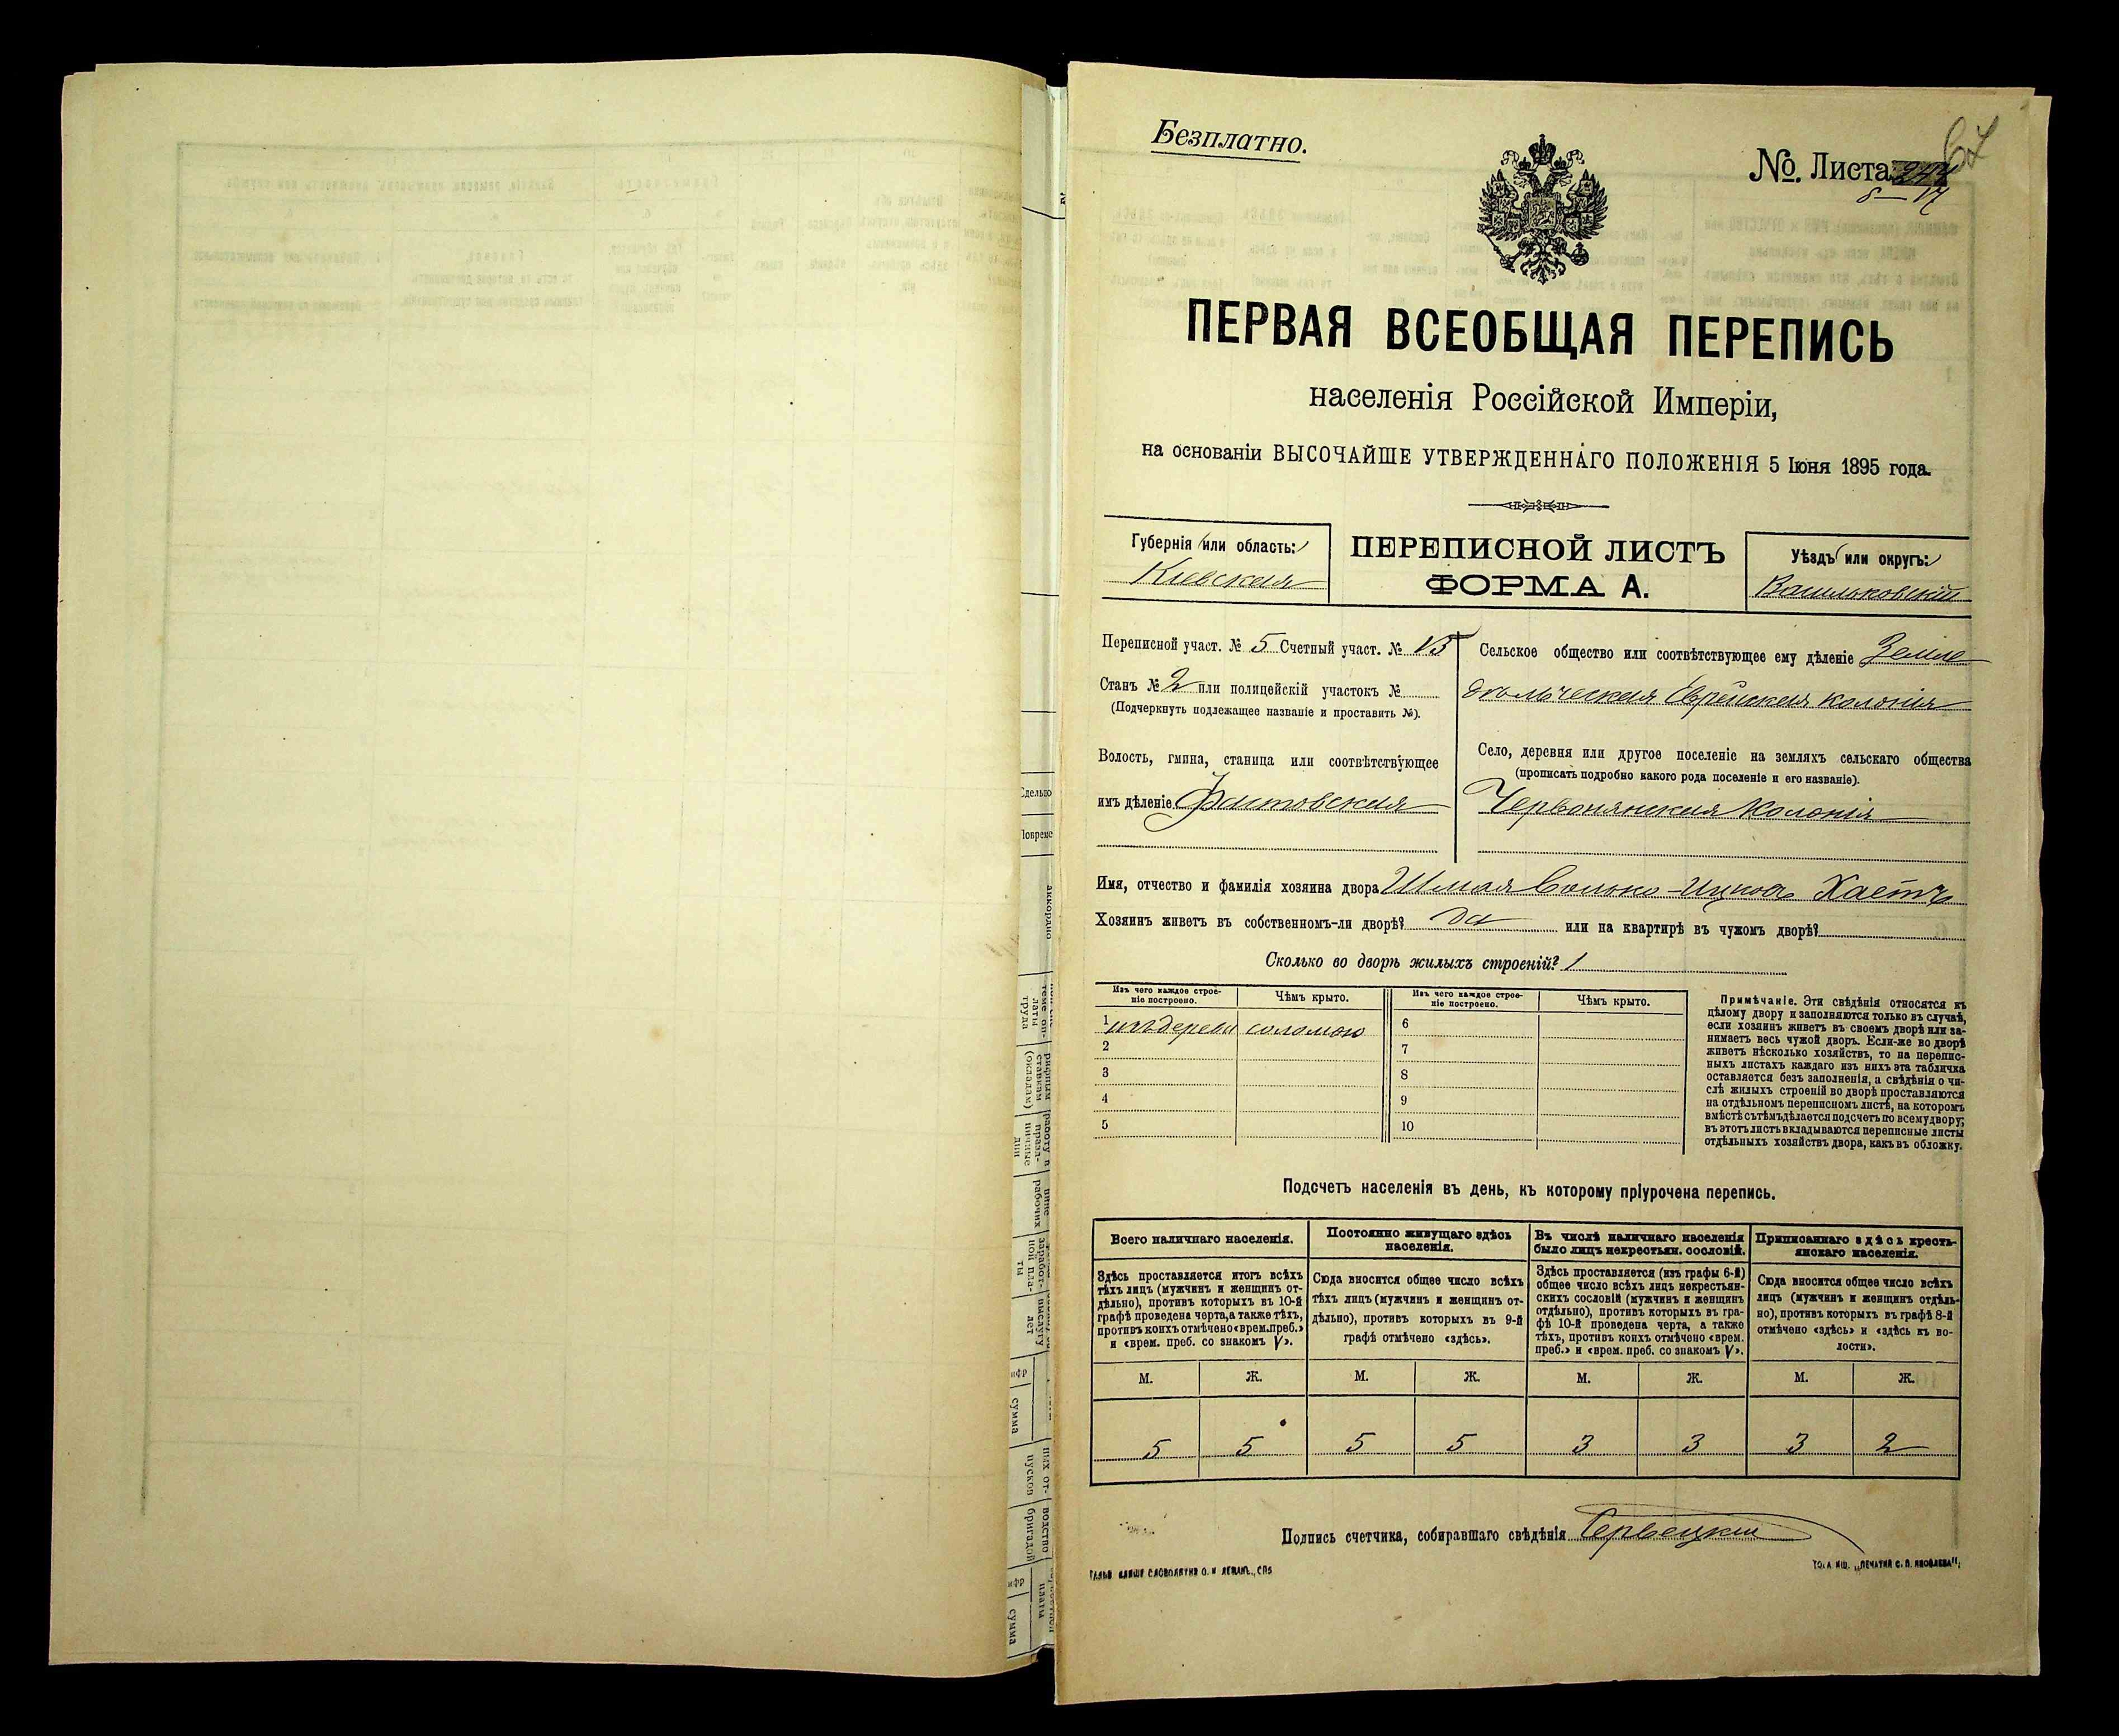 Безплатно.
№. Листа
67
ПЕРВАЯ ВСЕОБЩАЯ ПЕРЕПИСЬ
населенія Россійской Имперіи,
на основаніи ВЫСОЧАЙШЕ УТВЕРЖДЕННАГО ПОЛОЖЕНІЯ 5 Іюня 1895 года.
Губернія (или область:)
Кіевская
ПЕРЕПИСНОЙ ЛИСТЪ
ФОРМА А.
Уѣздъ (или округъ:)
Васильковскій
Переписной участ. № 5 Счетный участ. №
Станъ № 2 или полицейскій участокъ №
(Подчеркнуть подлежащее названіе и проставить №).
Волость, гмина, станица или соотвѣтствующее
имъ дѣленіе Фастовская
Сельское общество или соотвѣтствующее ему дѣленіе Земле
дѣльческая Еврейская колонія
Село, деревня или другое поселеніе на земляхъ сельскаго общества
(прописать подробно какого рода поселеніе и его названіе).
Червонянская Колонія
Имя, отчество и фамилія хозяина двора Шмая Волько-Ицков Хаетъ
Хозяинъ живетъ въ собственномъ-ли дворѣ? да или на квартирѣ въ чужомъ дворѣ?
Сколько во дворѣ жилыхъ строеній? 1
Изъ чего каждое строе-
ніе построено.
Чѣмъ крыто.
Изъ чего каждое строе-
ніе построено.
Чѣмъ крыто.
1 изъ дерева соломою
2
3
4
5
6
7
8
9
10
Примѣчаніе. Эти свѣдѣнія относятся къ
цѣлому двору и заполняются только въ случаѣ,
если хозяинъ живетъ въ своемъ дворѣ или за-
нимаетъ весь чужой дворъ. Если-же во дворѣ
живетъ нѣсколько хозяйствъ, то на перепис-
ныхъ листахъ каждаго изъ нихъ эта табличка
оставляется безъ заполненія, а свѣдѣнія о чи-
слѣ жилыхъ строеній во дворѣ проставляются
на отдѣльномъ переписномъ листѣ, на которомъ
вмѣстѣ съ тѣмъ дѣлается подсчетъ по всему двору;
въ этотъ листъ вкладываются переписные листы
отдѣльныхъ хозяйствъ двора, какъ въ обложку.
Подсчетъ населенія въ день, къ которому пріурочена перепись.
Всего наличнаго населенія.
Постоянно живущаго здѣсь
населенія.
Въ числѣ наличнаго населенія
было лицъ некрестьян. сословій.
Приписаннаго здѣсь кресть-
янскаго населенія.
Здѣсь проставляется итогъ всѣхъ
тѣхъ лицъ (мужчинъ и женщинъ от-
дѣльно), противъ которыхъ въ 10-й
графѣ проведена черта, а также тѣхъ,
противъ коихъ отмѣчено «врем. преб.»
и «врем. преб. со знакомъ V».
Сюда вносится общее число всѣхъ
тѣхъ лицъ (мужчинъ и женщинъ от-
дѣльно), противъ которыхъ въ 9-й
графѣ отмѣчено «здѣсь».
Здѣсь проставляется (изъ графы 6-й)
общее число всѣхъ лицъ некрестьян-
скихъ сословій (мужчинъ и женщинъ
отдѣльно), противъ которыхъ въ гра-
фѣ 10-й проведена черта, а также
тѣхъ, противъ коихъ отмѣчено «врем.
преб.» и «врем. преб. со знакомъ V».
Сюда вносится общее число всѣхъ
лицъ (мужчинъ и женщинъ отдѣль-
но), противъ которыхъ въ графѣ 8-й
отмѣчено «здѣсь» и «здѣсь къ во-
лости».
М. Ж. М. Ж. М. Ж. М. Ж.
5 5 5 5 3 3 3 2
Подпись счетчика, собиравшаго свѣдѣнія